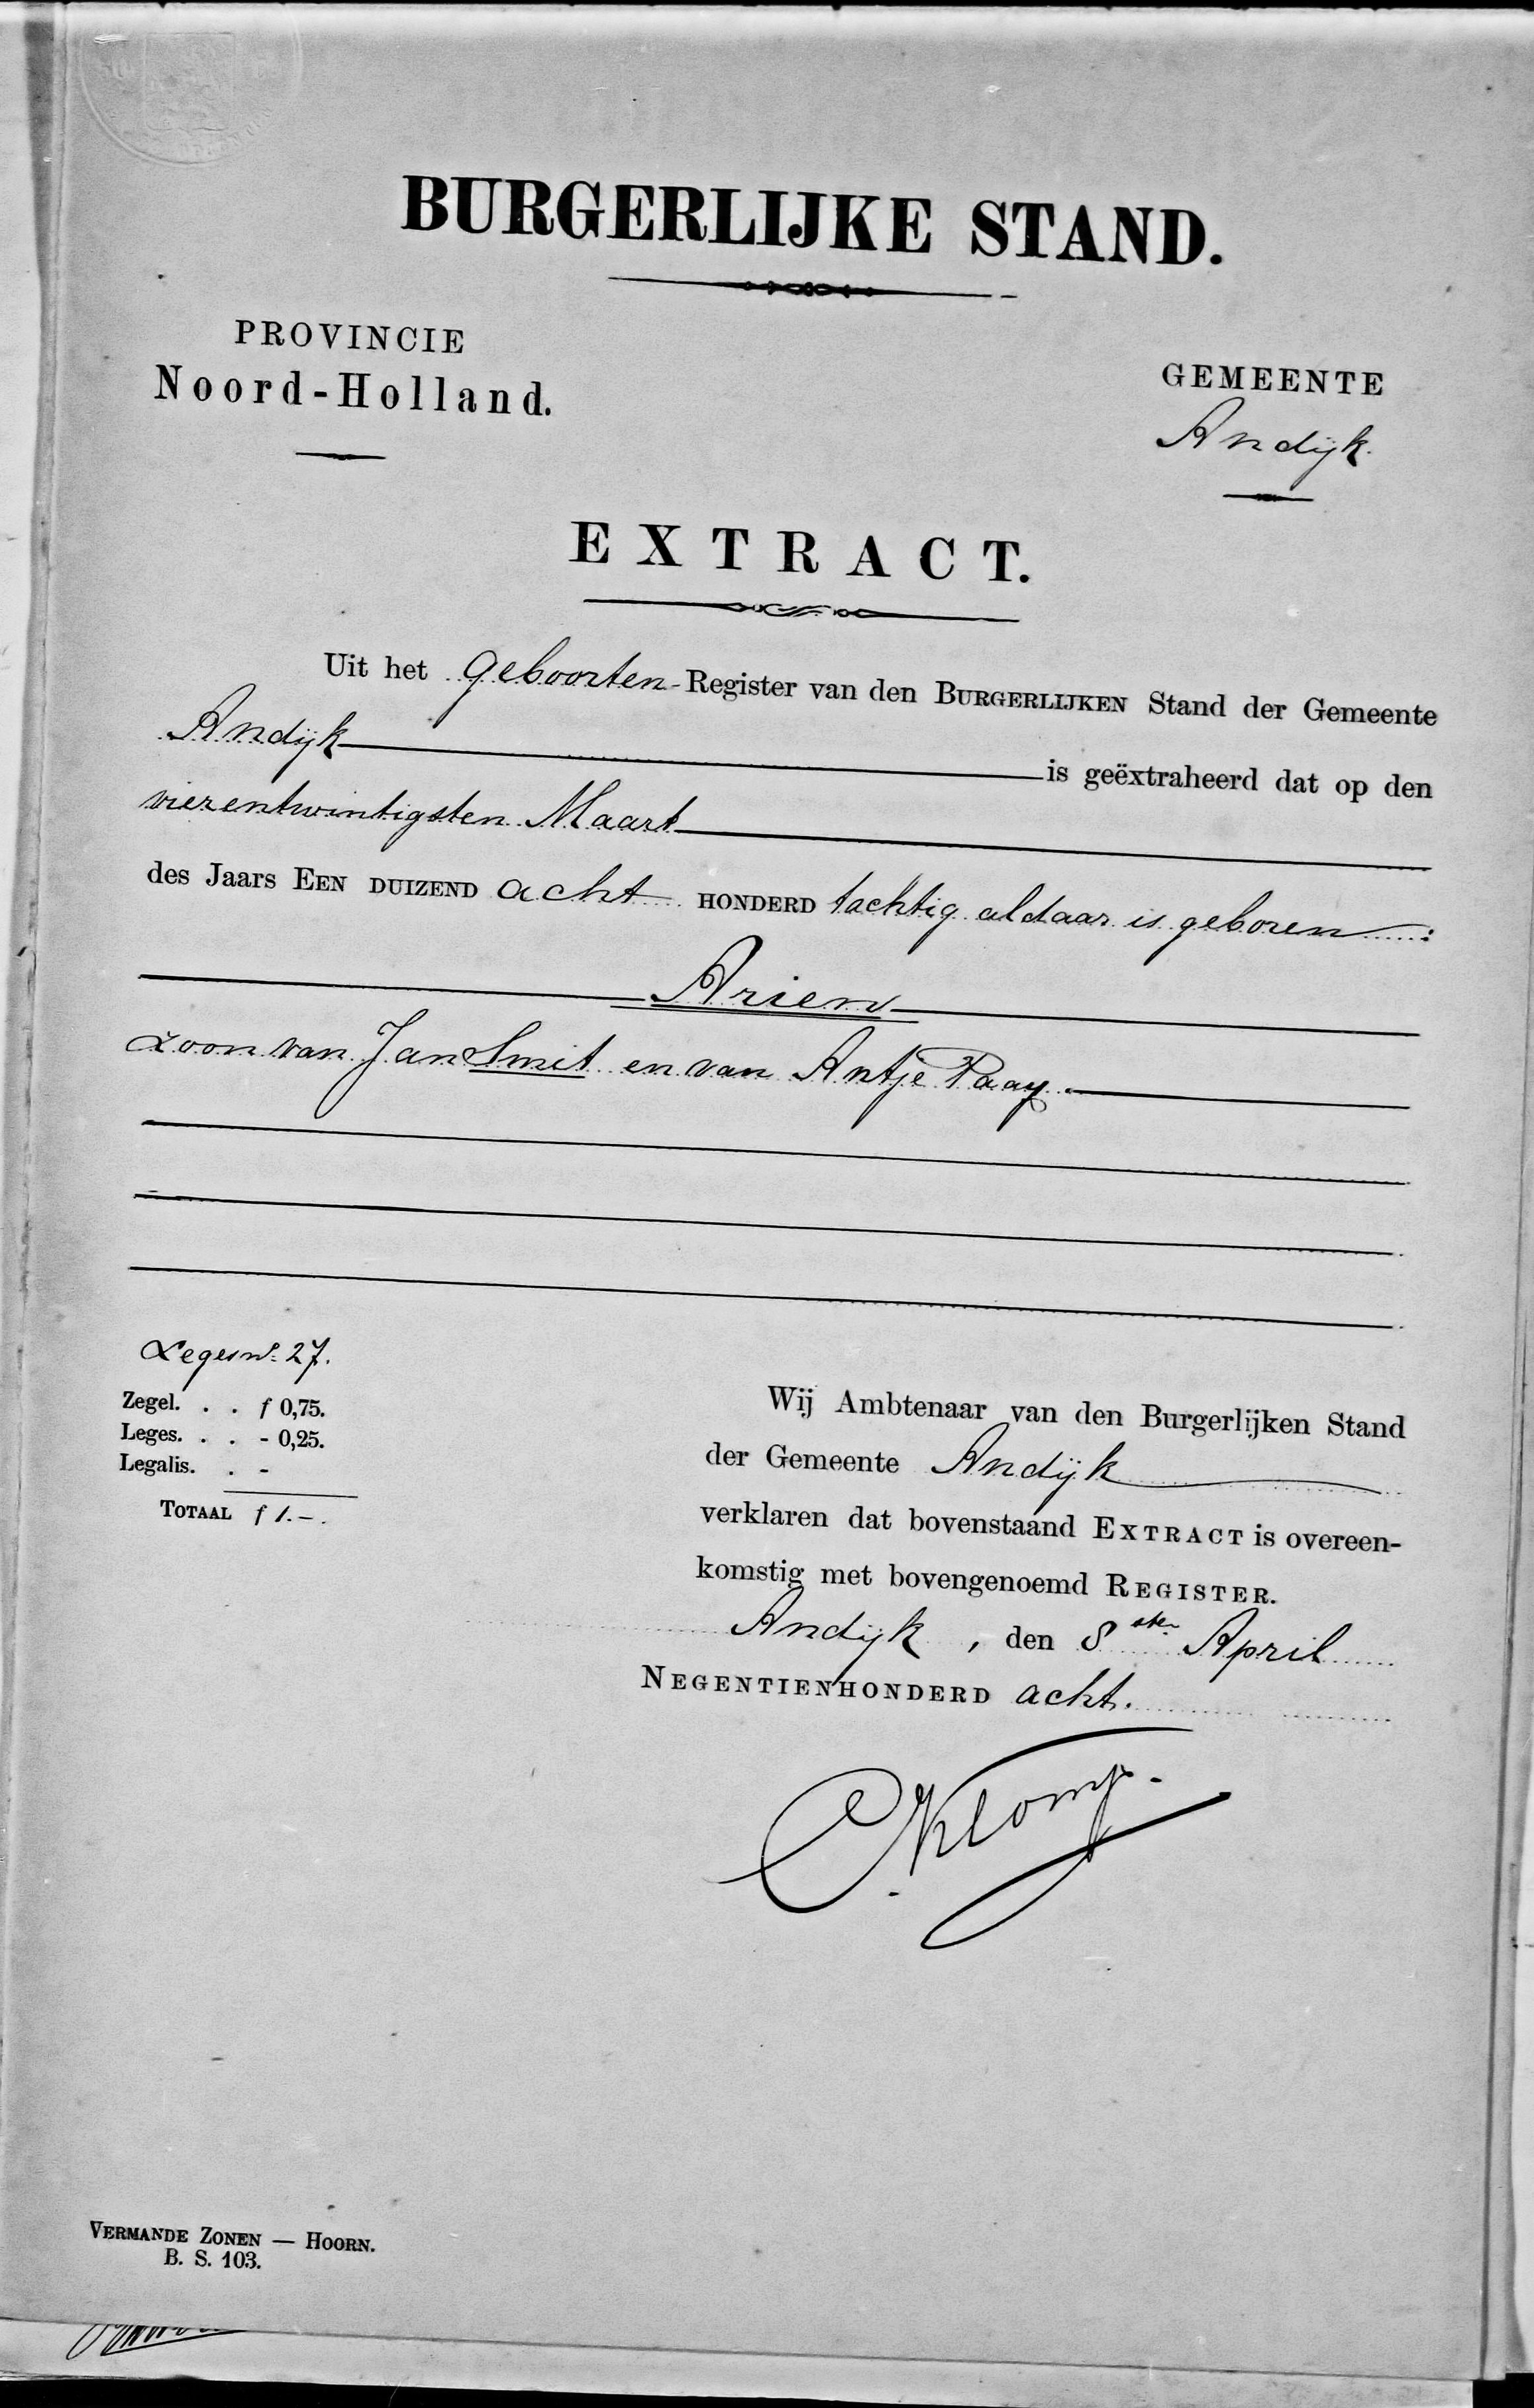 BURGERLIJKE STAND.
PROVINCIE
Noord-Holland.
GEMEENTE
Andijk.
EXTRACT.
Uit het Geboorten-Register van den BURGERLIJKEN Stand der Gemeente
Andijk is geëxtraheerd dat op den
vierentwintigsten Maart
des Jaars EEN DUIZEND acht HONDERD tachtig aldaar is geboren:
Ariem
zoon van Jan Smit en van Antje Paay.
Leges no. 27.
Zegel. . . f 0,75.
Leges. . . - 0,25.
Legalis. . -
TOTAAL f 1.-.
Wij Ambtenaar van den Burgerlijken Stand
der Gemeente Andijk
verklaren dat bovenstaand EXTRACT is overeen-
komstig met bovengenoemd REGISTER.
Andijk, den 8sten April
NEGENTIENHONDERD acht.
C. Klomp.
VERMANDE ZONEN — HOORN.
B. S. 103.